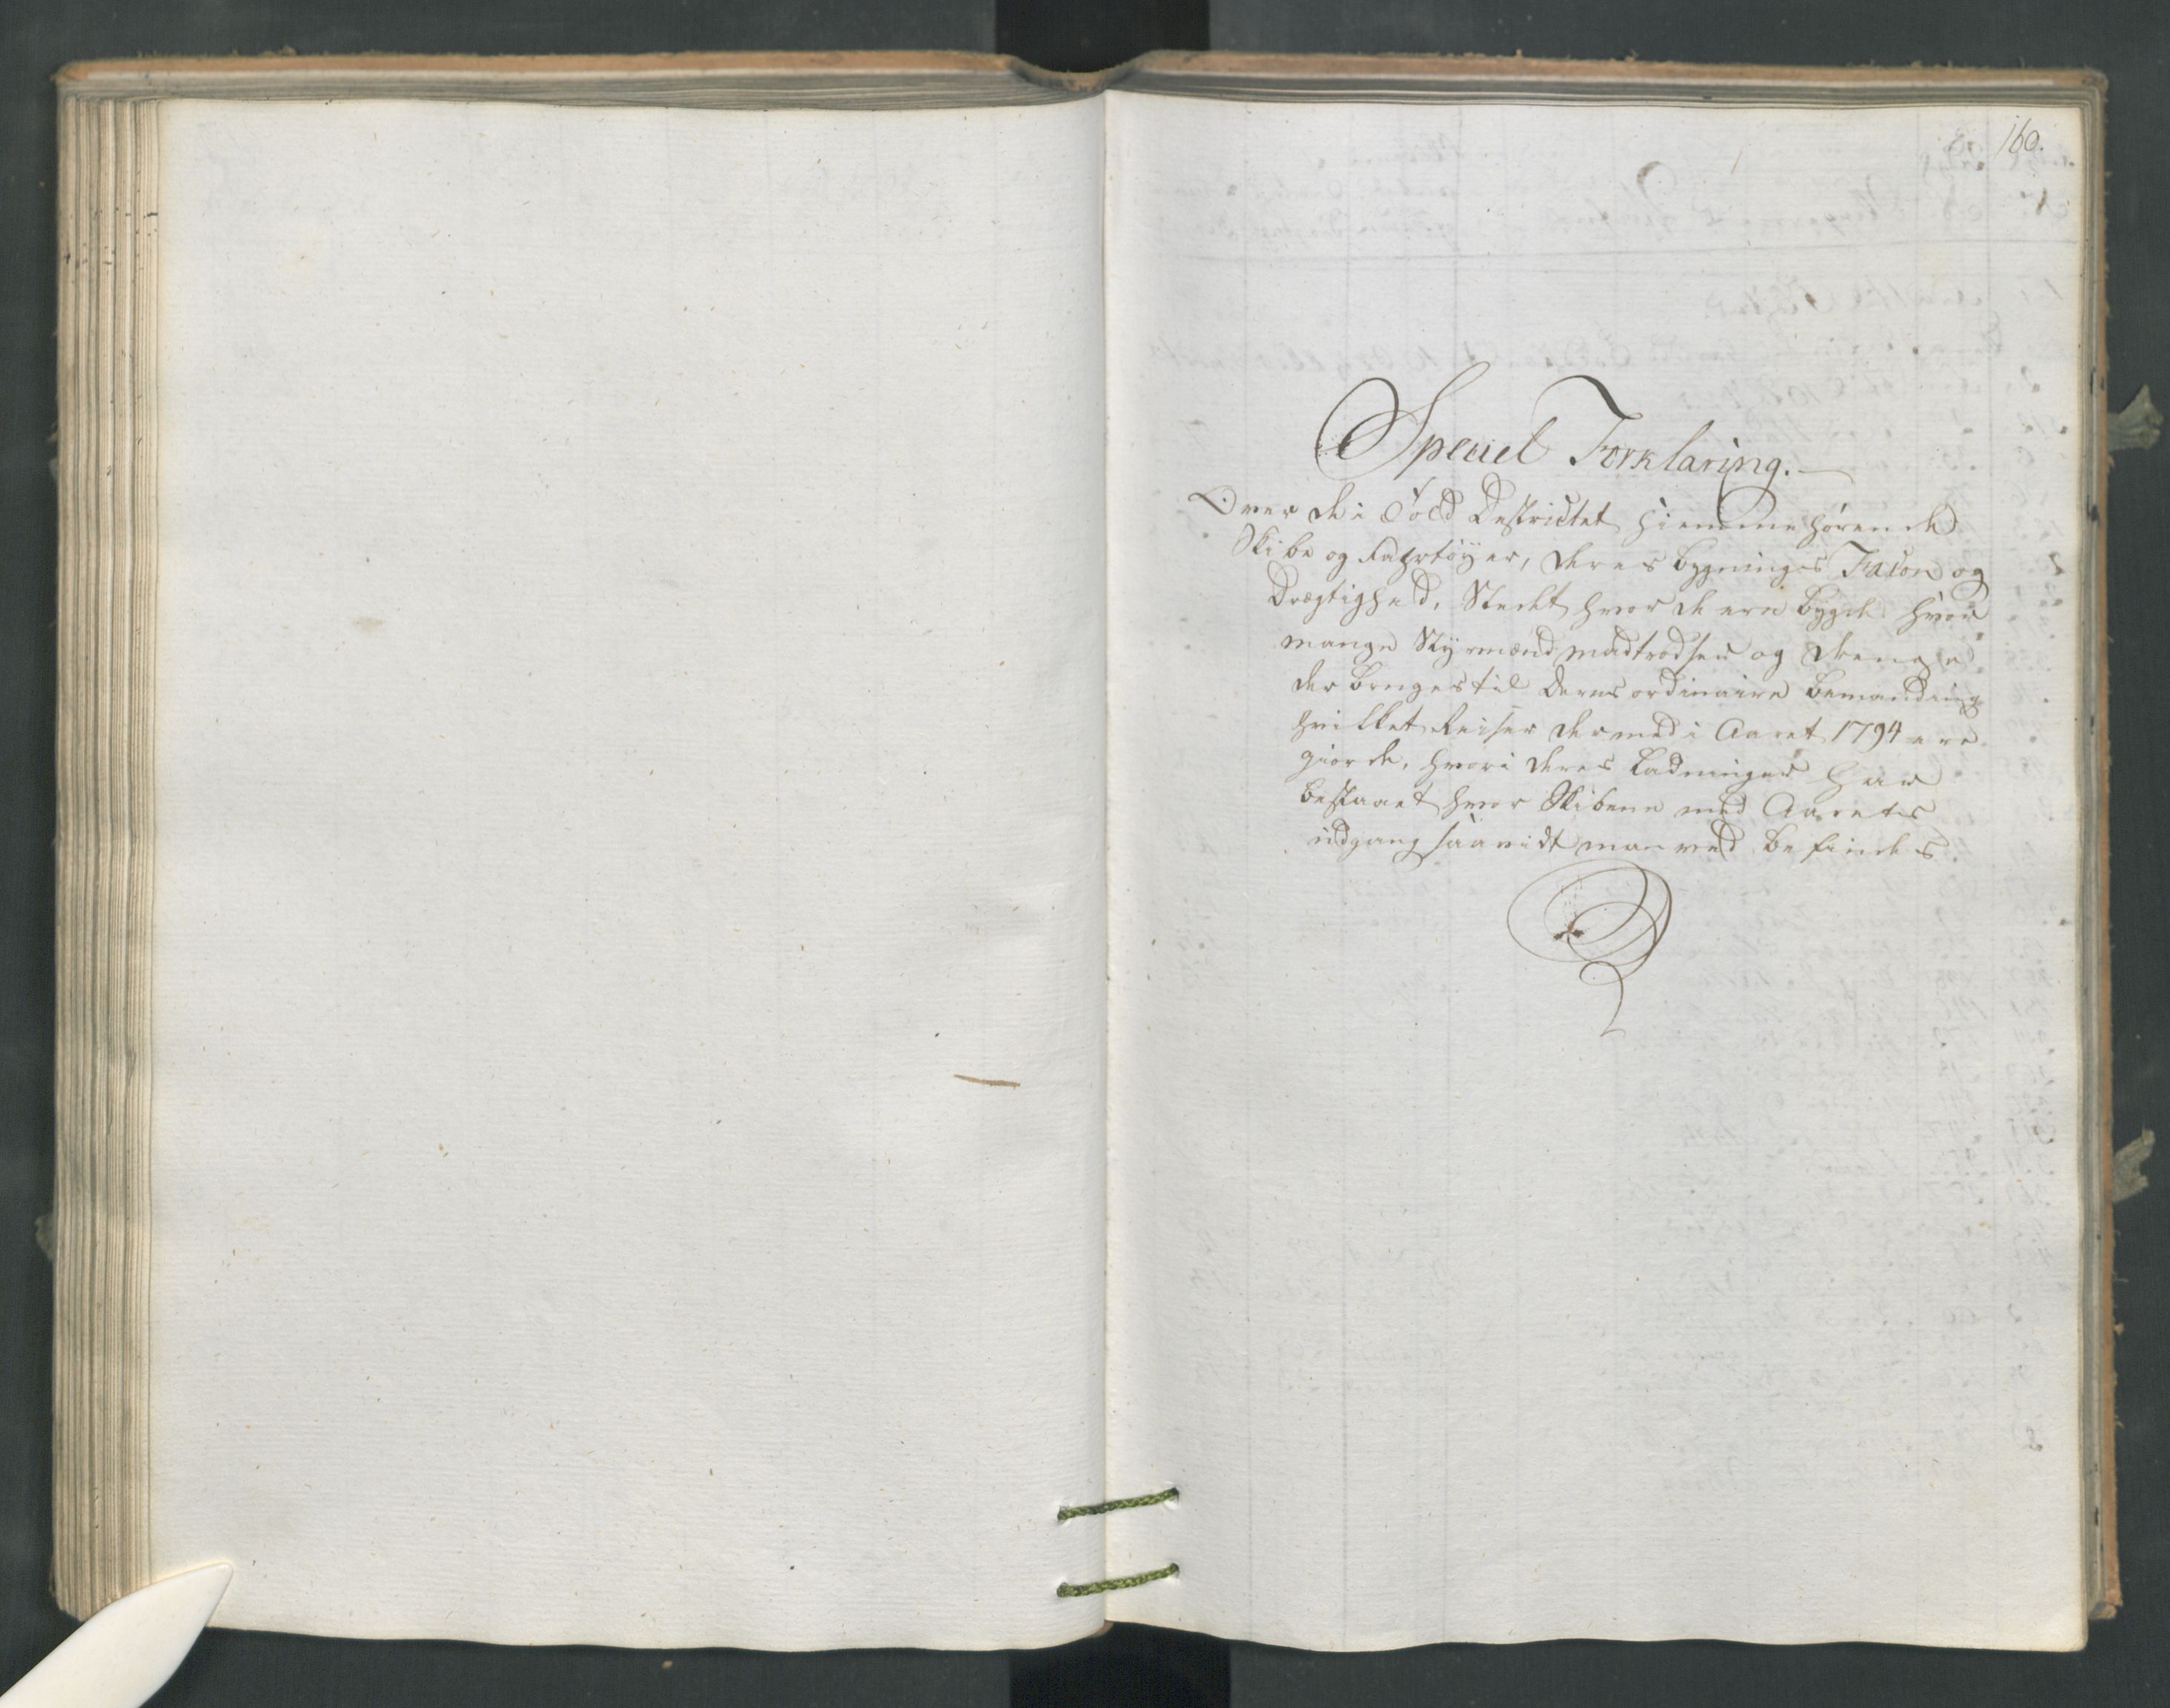 160.
Speciel Forklaring.
Over de i Told Destrictet hiemmehørende
Skibe og Fahrtøyer, deres bygnings Facon og
Drægtighed, Stedet hvor de ere bygde hvor
mange Styrmænd Madtrodser og Drenge
der bruges til deres ordinaire bemanding
hvilket Reiser dermed i Aaret 1794 ere
giorde, hvori deres Ladninger har
bestaaet hvor Skibene med Aarets
udgang saavidt man ved befindes